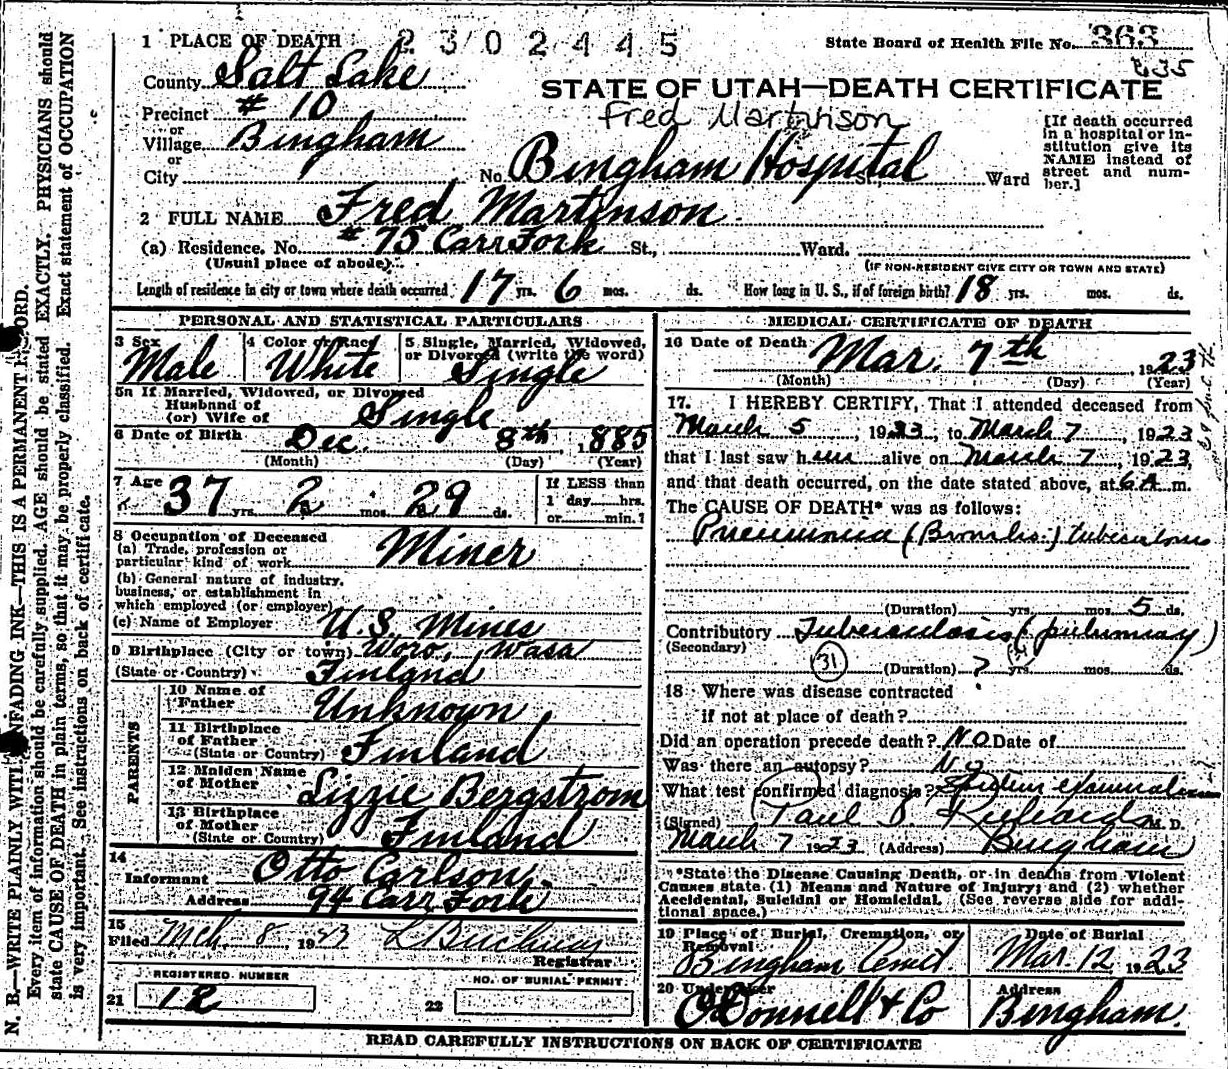 N. B.—WRITE PLAINLY WITH UNFADING INK—THIS IS A PERMANENT RECORD.
Every item of information should be carefully supplied. AGE should be stated EXACTLY. PHYSICIANS should
state CAUSE OF DEATH in plain terms, so that it may be properly classified. Exact statement of OCCUPATION
is very important. See instructions on back of certificate.
2302445
State Board of Health File No. 363
835
1 PLACE OF DEATH
County Salt Lake
STATE OF UTAH—DEATH CERTIFICATE
Precinct # 10
Fred Martinson
or
Village Bingham
or
City
No. Bingham Hospital St., Ward
[If death occurred
in a hospital or in-
stitution give its
NAME instead of
street and num-
ber.]
2 FULL NAME Fred Martinson
(a) Residence. No. # 75 Carr Fork St., Ward.
(Usual place of abode)
(IF NON-RESIDENT GIVE CITY OR TOWN AND STATE)
Length of residence in city or town where death occurred 17 yrs. 6 mos. ds. How long in U. S., if of foreign birth? 18 yrs. mos. ds.
PERSONAL AND STATISTICAL PARTICULARS
3 Sex
Male
4 Color or Race
White
5 Single, Married, Widowed,
or Divorced (write the word)
Single
5a If Married, Widowed, or Divorced
Husband of
(or) Wife of
Single
6 Date of Birth Dec. 8th, 1885
(Month) (Day) (Year)
7 Age 37 yrs. 2 mos. 29 ds.
If LESS than
1 day hrs.
or min.?
8 Occupation of Deceased
(a) Trade, profession or
particular kind of work Miner
(b) General nature of industry,
business, or establishment in
which employed (or employer)
(c) Name of Employer U.S. Mines
9 Birthplace (City or town) Woro, Wasa
(State or Country) Finland
PARENTS
10 Name of
Father Unknown
11 Birthplace
of Father
(State or Country) Finland
12 Maiden Name
of Mother Lizzie Bergstrom
13 Birthplace
of Mother
(State or Country) Finland
14
Informant Otto Carlson
Address 94 Carr Fork
15
Filed Mch. 8, 1923
Registrar
REGISTERED NUMBER
21 12
NO. OF BURIAL PERMIT
22
MEDICAL CERTIFICATE OF DEATH
16 Date of Death Mar. 7th, 1923
(Month) (Day) (Year)
17. I HEREBY CERTIFY, That I attended deceased from
March 5, 1923, to March 7, 1923
that I last saw him alive on March 7, 1923,
and that death occurred, on the date stated above, at 6 A m.
The CAUSE OF DEATH* was as follows:
Pneumonia (Broncho.) tuberculous
(Duration) yrs. mos. 5 ds.
Contributory Tuberculosis (pulmonary)
(Secondary)
31
(Duration) ? yrs. mos. ds.
18 Where was disease contracted
if not at place of death?
Did an operation precede death? No Date of
Was there an autopsy? No
What test confirmed diagnosis? Sputum examination
(Signed) Paul S Richards M. D.
March 7 1923 (Address) Bingham
*State the Disease Causing Death, or in deaths from Violent
Causes state (1) Means and Nature of Injury; and (2) whether
Accidental, Suicidal or Homicidal. (See reverse side for addi-
tional space.)
19 Place of Burial, Cremation, or
Removal
Bingham Cemt.
Date of Burial
Mar. 12 1923
20 Undertaker
O'Donnell & Co
Address
Bingham.
READ CAREFULLY INSTRUCTIONS ON BACK OF CERTIFICATE